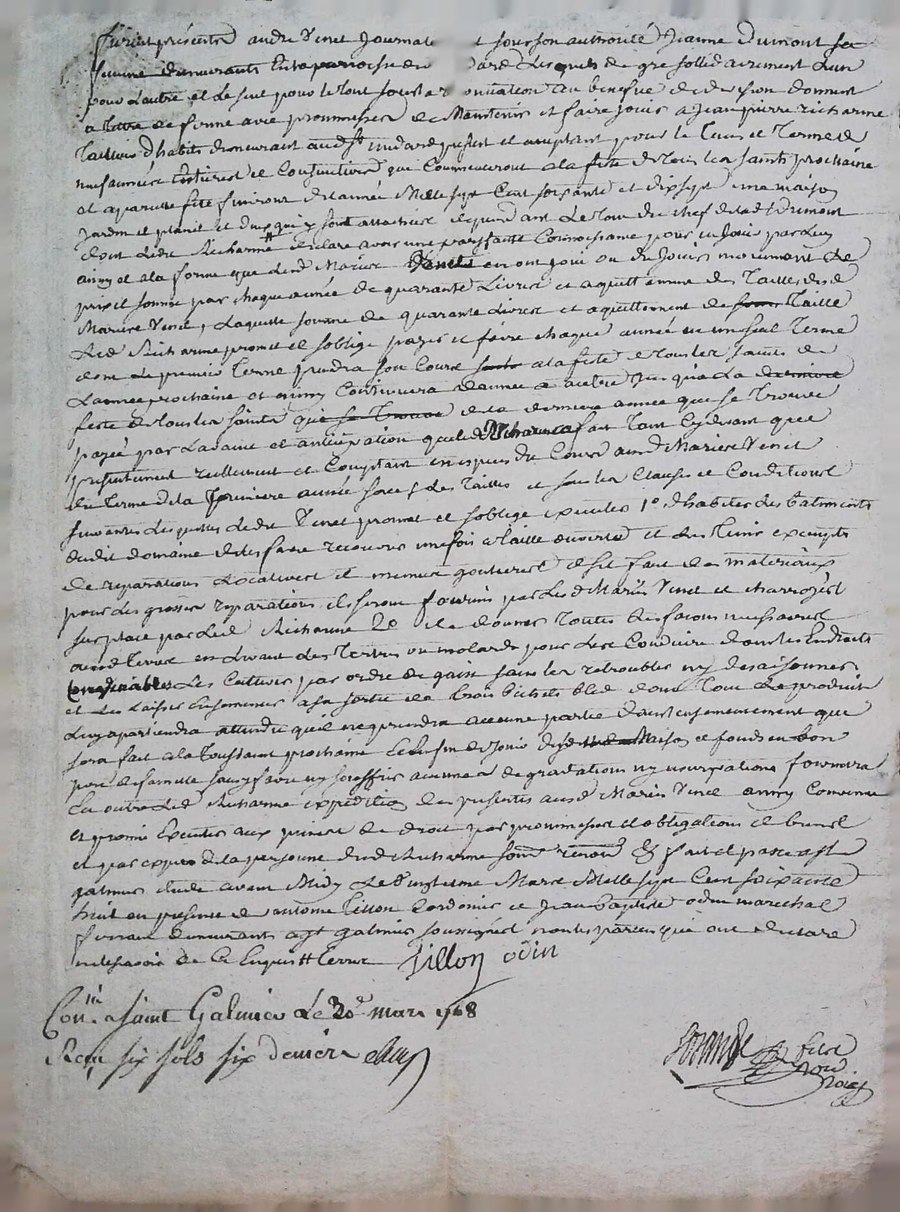 furent présents andre Vinet Journal sous son authorité Jeanne Dumont sa
femme demeurants en la paroisse de dard Lesquels de gre sollidairement Lun
pour Lautre et Le seul pour le tout sous la r onciation au benefice de division donnent
a titre de ferme avec promesses de Maintenir et faire jouir a Jean pierre richarme
Tailleur d'habits demeurant aud st medard present et acceptant pour le Tems et Terme de
neuf années entieres et Consecutives qui Commenceront a la fête de Tous les saints prochaine
et a pareille fête finiront de l'année Mille sept Cent soixante et dix sept une maison
Jardin et et tout ce qui y sont attachés dependant Le tout du chef de lad Dumont
dont Ledit Richarme declare avoir une parfaite Connoissance pour en Jouir par Luy
ainsy et a la forme que Lesd Mariés en ont joui ou du Jouir moyenant Le
prix et somme par chaque année de quarante Livres et aquittement des Tailles desd
Mariés Vinet, Laquelle somme de quarante Livres et aquittement de Taille
Led Richarme promet et s'oblige payer et faire chaque année en un seul Terme
dont Le premier Terme prendra son Cours a la fête de tous les saints de
L'année prochaine et ainsy Continuera d'année a autre Jusqu'a La
feste de tous les saints que de la derniere année que se trouve
payée par L'avance et anticipation que led Richarme a fait tant Cydevant que
presentement reellement et Comptant en especes du Cours aud Mariés Vinet
du Terme de la premiere année sauf des Tailles et sous les Clauses et Conditions
suivantes Lesquelles Ledit Vinet promet et s'oblige executer 1° d'habiter les batiments
dudit domaine de les faire recouvrir une fois a taille ouverte et Les tenir exempts
de reparations Locatives et menues goutieres et s'il faut des materiaux
pour Les grosses reparations ils seront fournis par Lesd Mariés Vinet et charroyés
sur place par Led Richarme 2° de donner Toutes Les façons necessaires
aux Terres en Levant des Tertres ou molards pour Les Conduire dans Les Endroits
Convenables Les Cultiver par ordre de grain sans les retroubler ny dessaisonner
et Les Laisser Ensemencées a sa sortie de trois bichets bled dont Tout Le produit
Luy apartiendra attendu qu'il ne prendra aucune partie dans l'ensemencement que
sera fait a la Toussaint prochaine Enfin de Jouir desd Maison et fonds en bon
pere de famille sans y faire ny souffrir aucunes degradations ny usurpations fournira
En outre Led Richarme expedition des presentes ausd Mariés Vinet ainsy Convenu
et promis Executer aux peines de droit par promesses et obligations de biens
et par exprés de la personne dud Richarme soum renon &c fait et passé a st
galmier Etude avant Midy Le Vingtieme Mars Mille sept Cent soixante
huit en presence de antoine Tillon Cordonier et Jean baptiste odin marechal
ferrant demeurants a st galmier soussignés non les parties qui ont declaré
ne le savoir de Ce Enquis et
Tillon odin
Con.lé a saint Galmier Le 20e mars 1768
Reçu six sols six deniers